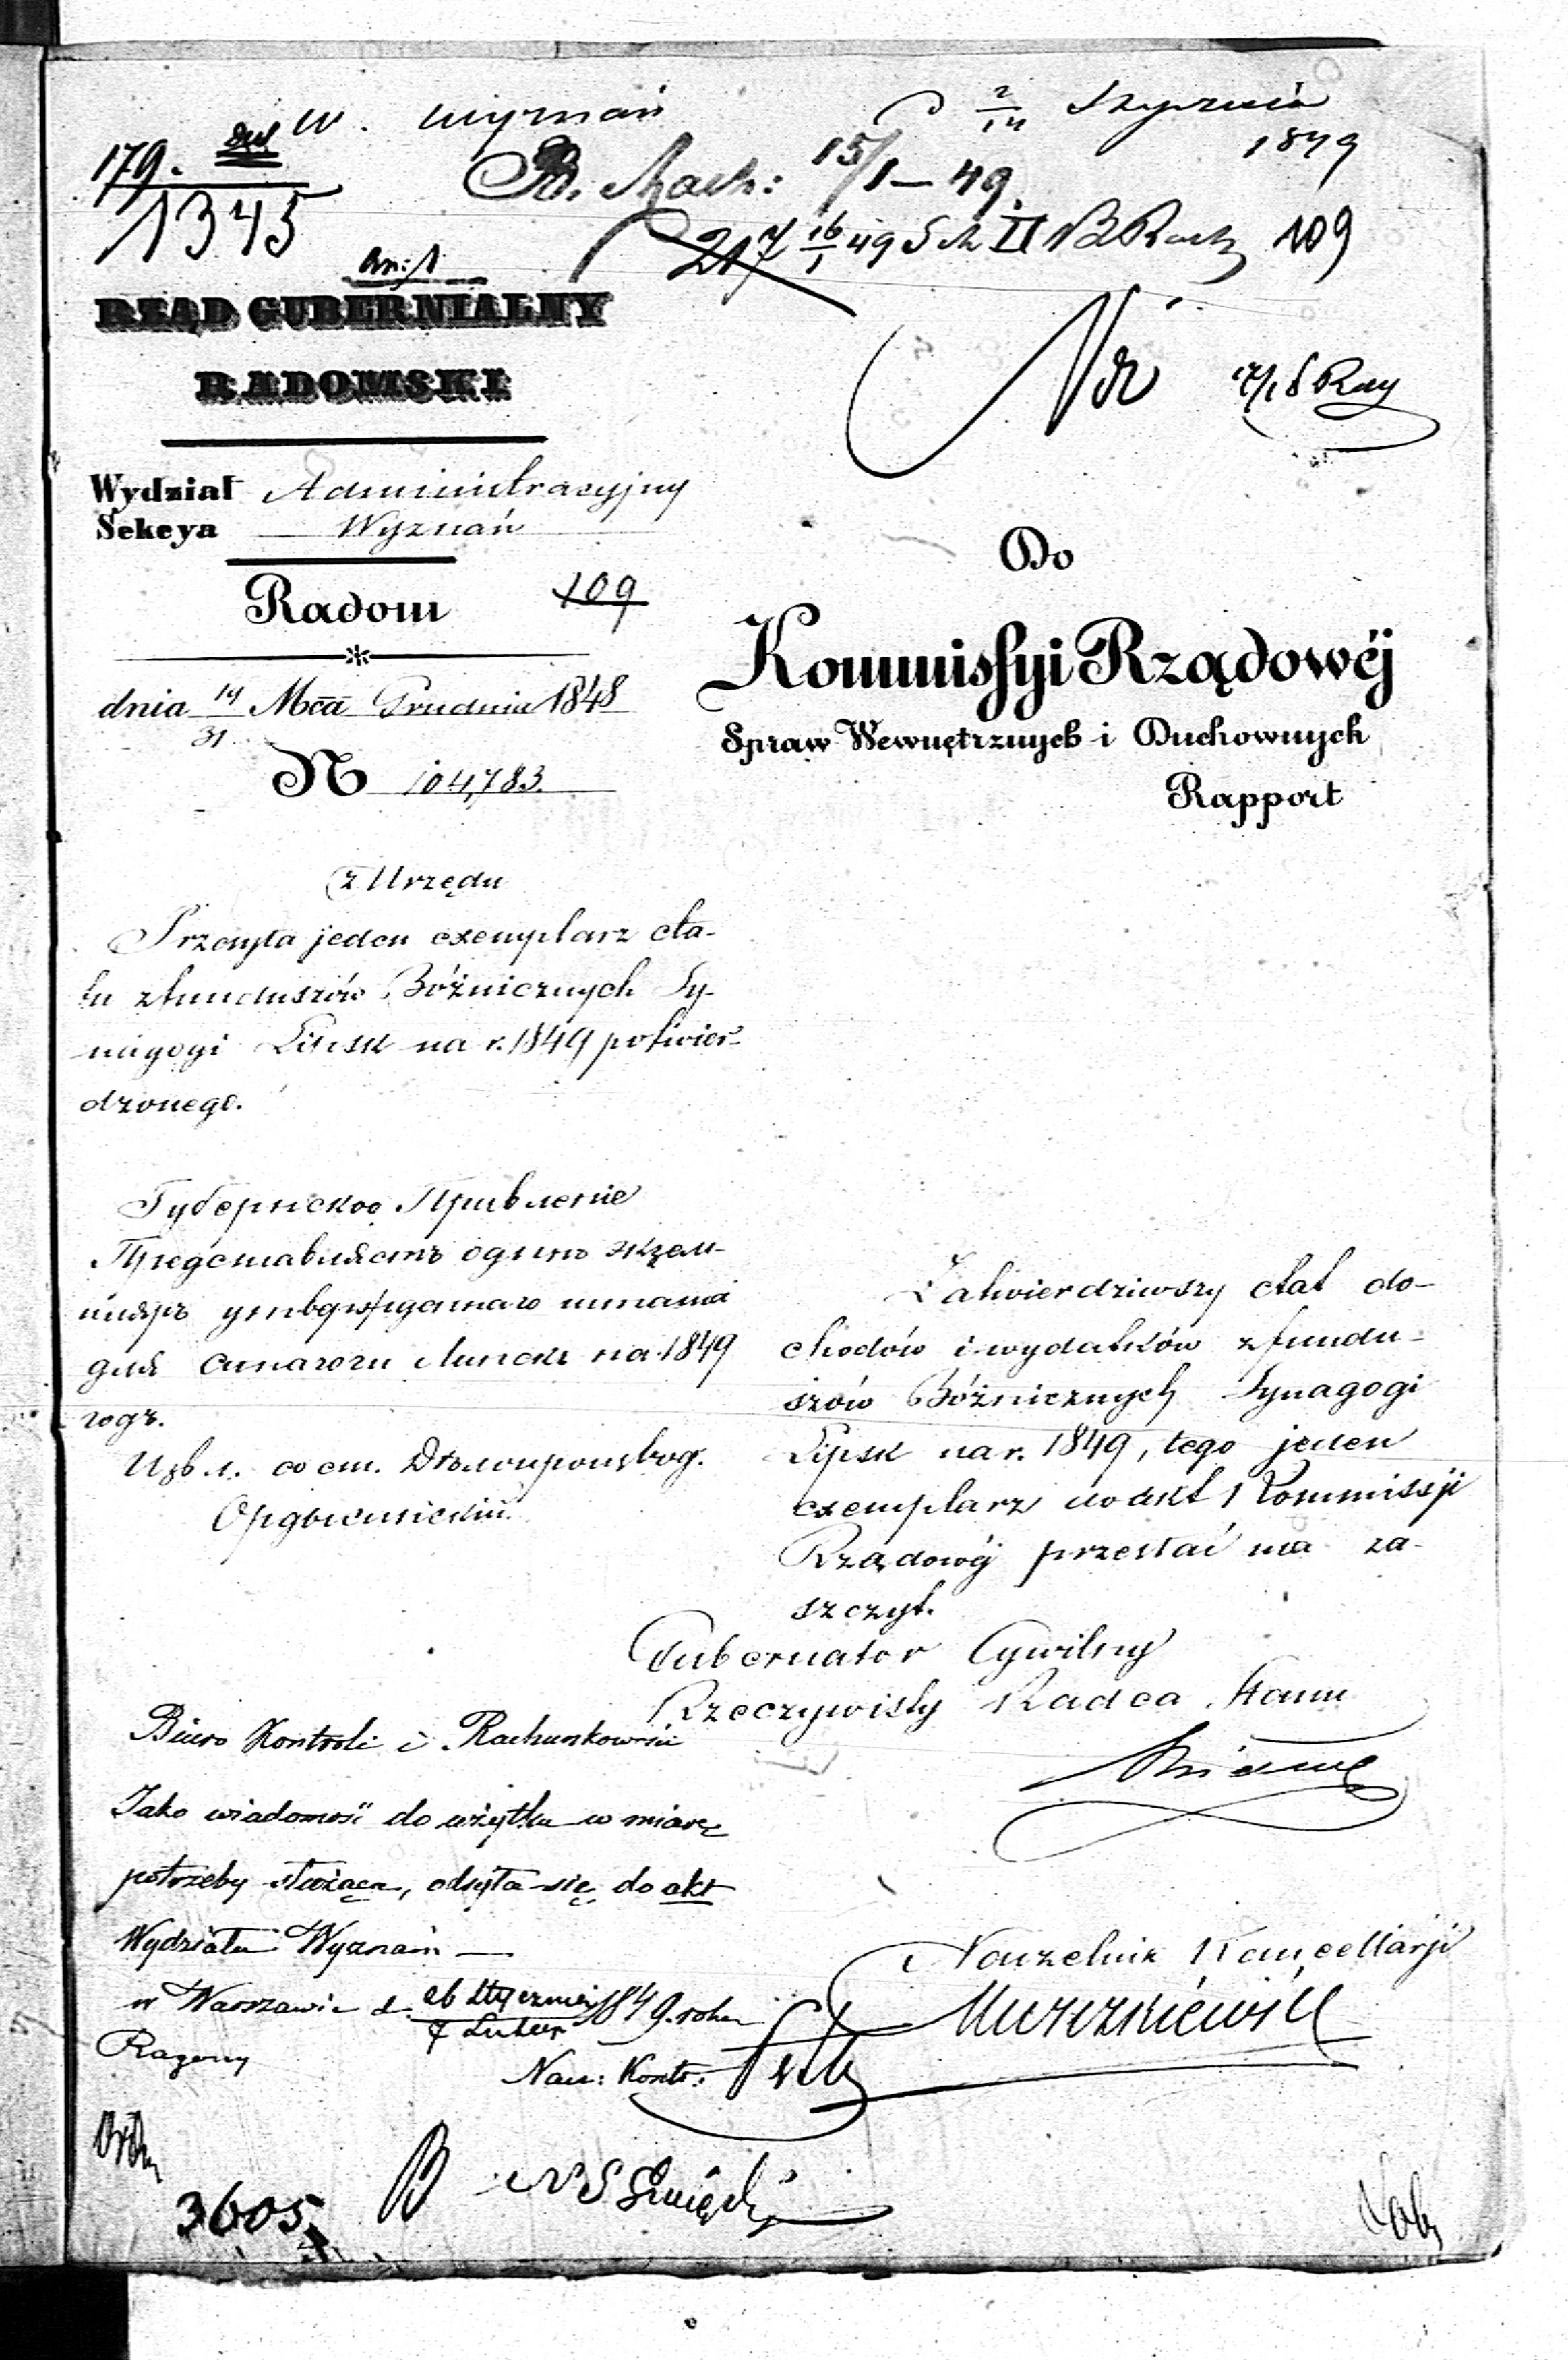 W. Wyznań
2/14 Stycznia
1849
179.
1345
B. Rach: 15/1 – 49.
217 16/1 49 II 109
An: 1
RZĄD GUBERNIALNY
RADOMSKI
Wydział Administracyjny
Sekcya Wyznań
Radom 109
dnia 19/31 Mca Grudnia 1848
N 104,783.
Do
Kommissyi Rządowéj
Spraw Wewnętrznych i Duchownych
Rapport
z Urzędu
Przesyła jeden exemplarz eta-
tu z funduszów Bóżnicznych Sy-
nagogi Lipsk na r. 1849 potwier-
dzonego.
Губернское Правление
Представляетъ одинъ экзем-
пляръ утвержденнаго штата
для синагоги Липскъ на 1849
годъ.
Zatwierdziwszy etat do-
chodów i wydatków z fundu-
szów Bóżnicznych Synagogi
Lipsk na r. 1849, tego jeden
exemplarz do akt Kommissji
Rządowéj przesłać ma za-
szczyt.
Gubernator Cywilny
Rzeczywisty Radca Stanu
Biuro Kontroli i Rachunkowości
Jako wiadomość do użytku w miarę
potrzeby służąca, odsyła się do akt
Wydziału Wyznań
w Warszawie d. 26 Stycznia/7 Lutego 1849. roku
Nacz: Kontr:
Naczelnik Kancellarji
B
3605